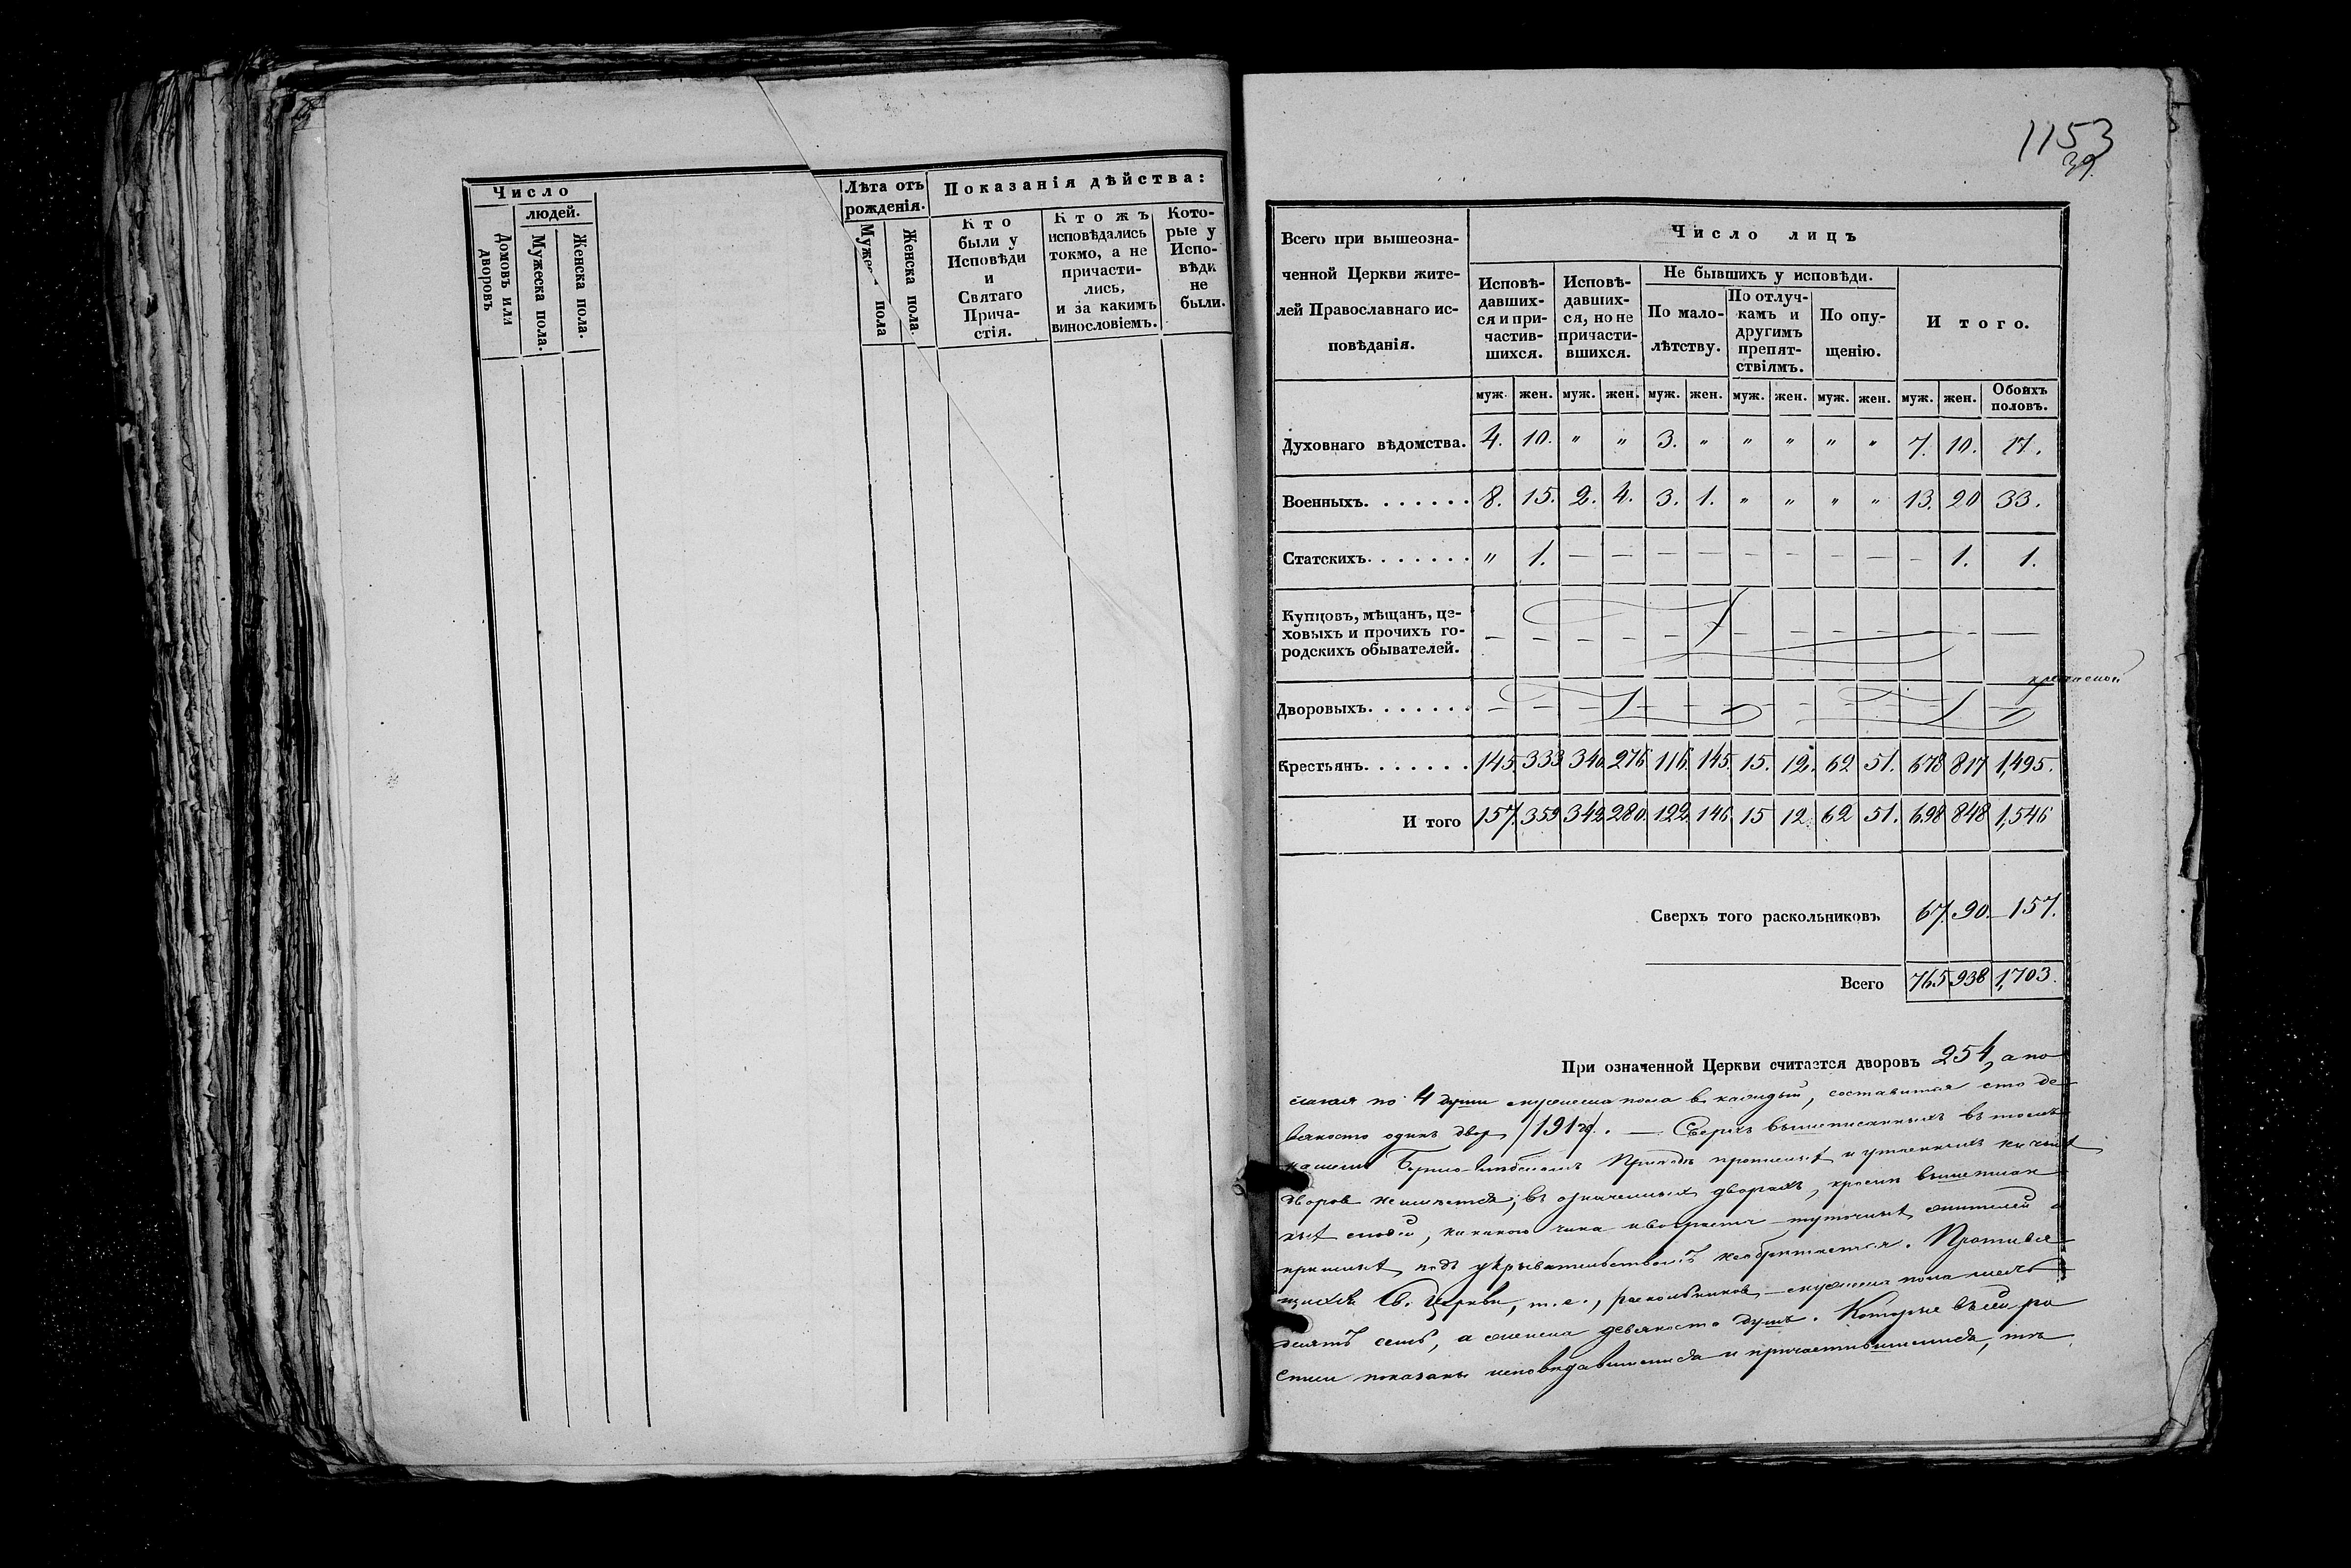 Число
людей.
Домовъ или дворовъ
Мужеска пола.
Женска пола.
Лѣта отъ
рожденія.
пола
Женска пола.
Показанія дѣйства:
Кто
были у
Исповѣди
и
Святаго
Прича-
стія.
Ктожъ
исповѣдались
токмо, а не
причасти-
лись,
и за какимъ
винословіемъ.
Кото-
рые у
Испо-
вѣди
не
были.
1153
39.
Всего при вышеозна-
ченной Церкви жите-
лей Православнаго ис-
повѣданія.
Число лицъ
Исповѣ-
давших-
ся и при-
частив-
шихся.
Исповѣ-
давших-
ся, но не
причасти-
вшихся.
Не бывшихъ у исповѣди.
По мало-
лѣтству.
По отлуч-
камъ и
другимъ
препят-
ствіямъ.
По опу-
щенію.
И того.
муж. жен. муж. жен. муж. жен. муж. жен. муж. жен. муж. жен. Обоихъ
половъ.
Духовнаго вѣдомства. 4. 10. " " 3. " " " " " 7. 10. 17.
Военныхъ. . . . . . . 8. 15. 2. 4. 3. 1. " " " " 13. 20 33.
Статскихъ. . . . . . . " 1. — — — — — — — — — 1. 1.
Купцовъ, мѣщанъ, це-
ховыхъ и прочихъ го-
родскихъ обывателей. — — — — — — — — — — — — —
Дворовыхъ. . . . . . . — — — — — — — — — — — — —
Крестьянъ. . . . . . . 145. 333 340. 276 116. 145. 15. 12. 62 51. 678 817 1,495.
И того 157. 359 342 280. 122. 146. 15 12. 62 51. 698 848 1,546
Сверхъ того раскольниковъ 67. 90. 157.
Всего 765 938 1,703.
При означенной Церкви считается дворовъ 254, а по
лагая по 4 души мужеска пола въ каждый, составится сто де-
вяносто одинъ двор /191 . — Сверхъ вышеписанныхъ въ томъ
Приходѣ и утаенныхъ
дворовъ не имѣется; въ означенныхъ дворахъ, кроме вышеписан
ныхъ людей, никакого чина и возраста жителей
подъ укрывательствомъ не обретается. Противя
щихся Св. Церкви, т. е., раскольниковъ — мужеска пола шесть
десятъ семь, а женска девяносто душъ. Которые въ сей ро
списи показаны исповѣдавшимися и причастившимися, тѣ